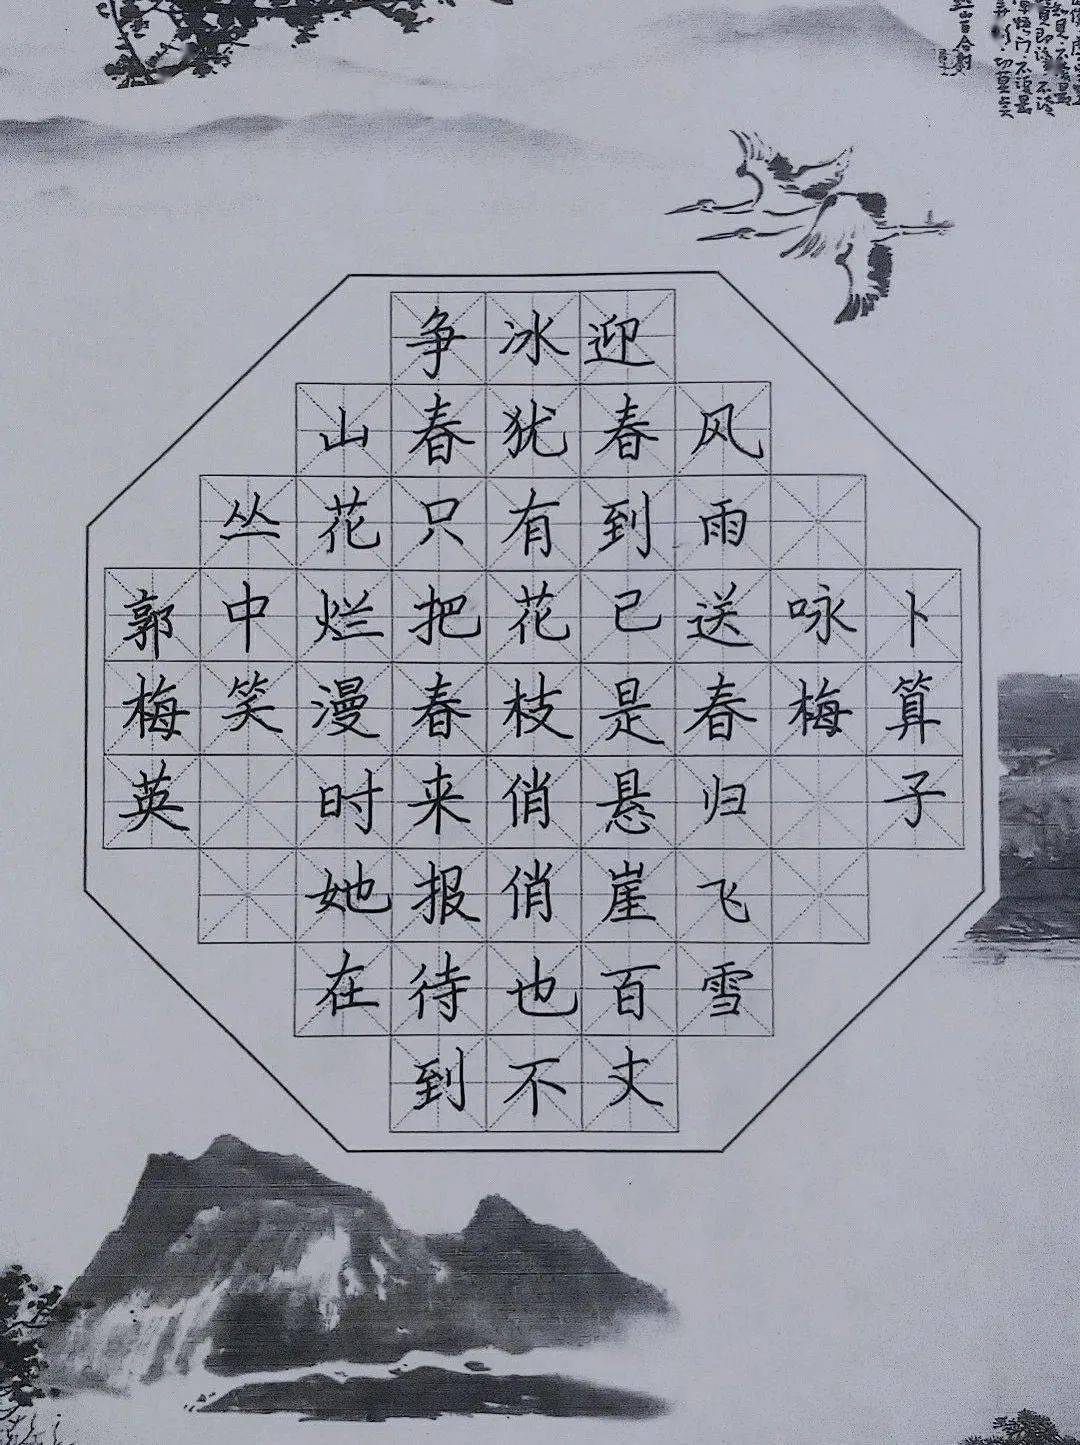 卜算子
咏梅
风雨送春归飞雪
迎春到已是悬崖百丈
冰犹有花枝俏俏也不
争春只把春来报待到
山花烂漫时她在
丛中笑
郭梅英